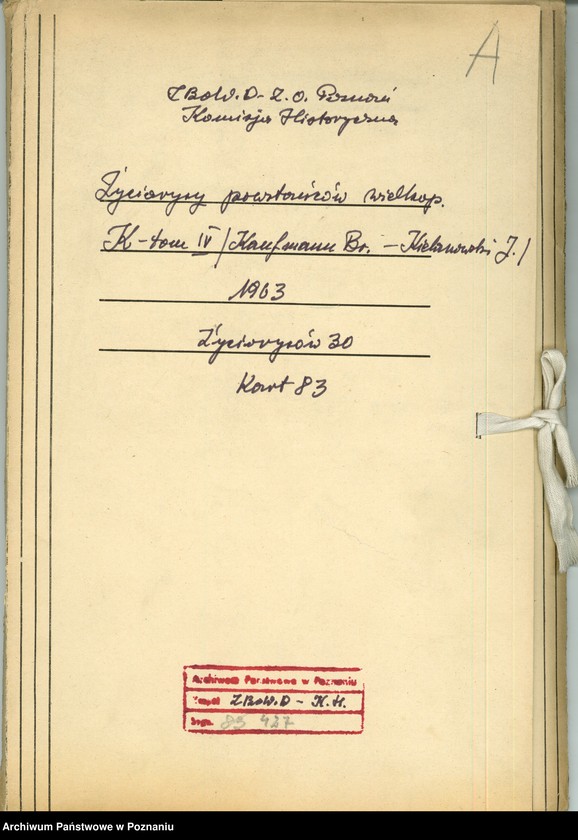 A
ZBoW.D - Z.O. Poznań
Komisja Historyczna
Życiorysy powstańców wielkop.
K - tom IV /Kaufmann Br. - Kielanowski J./
1963
Życiorysów 30
Kart 83
Archiwum Państwowe w Poznaniu
Zespół ZBoW.D - K.H.
Sygn.
Archiwum Państwowe w Poznaniu